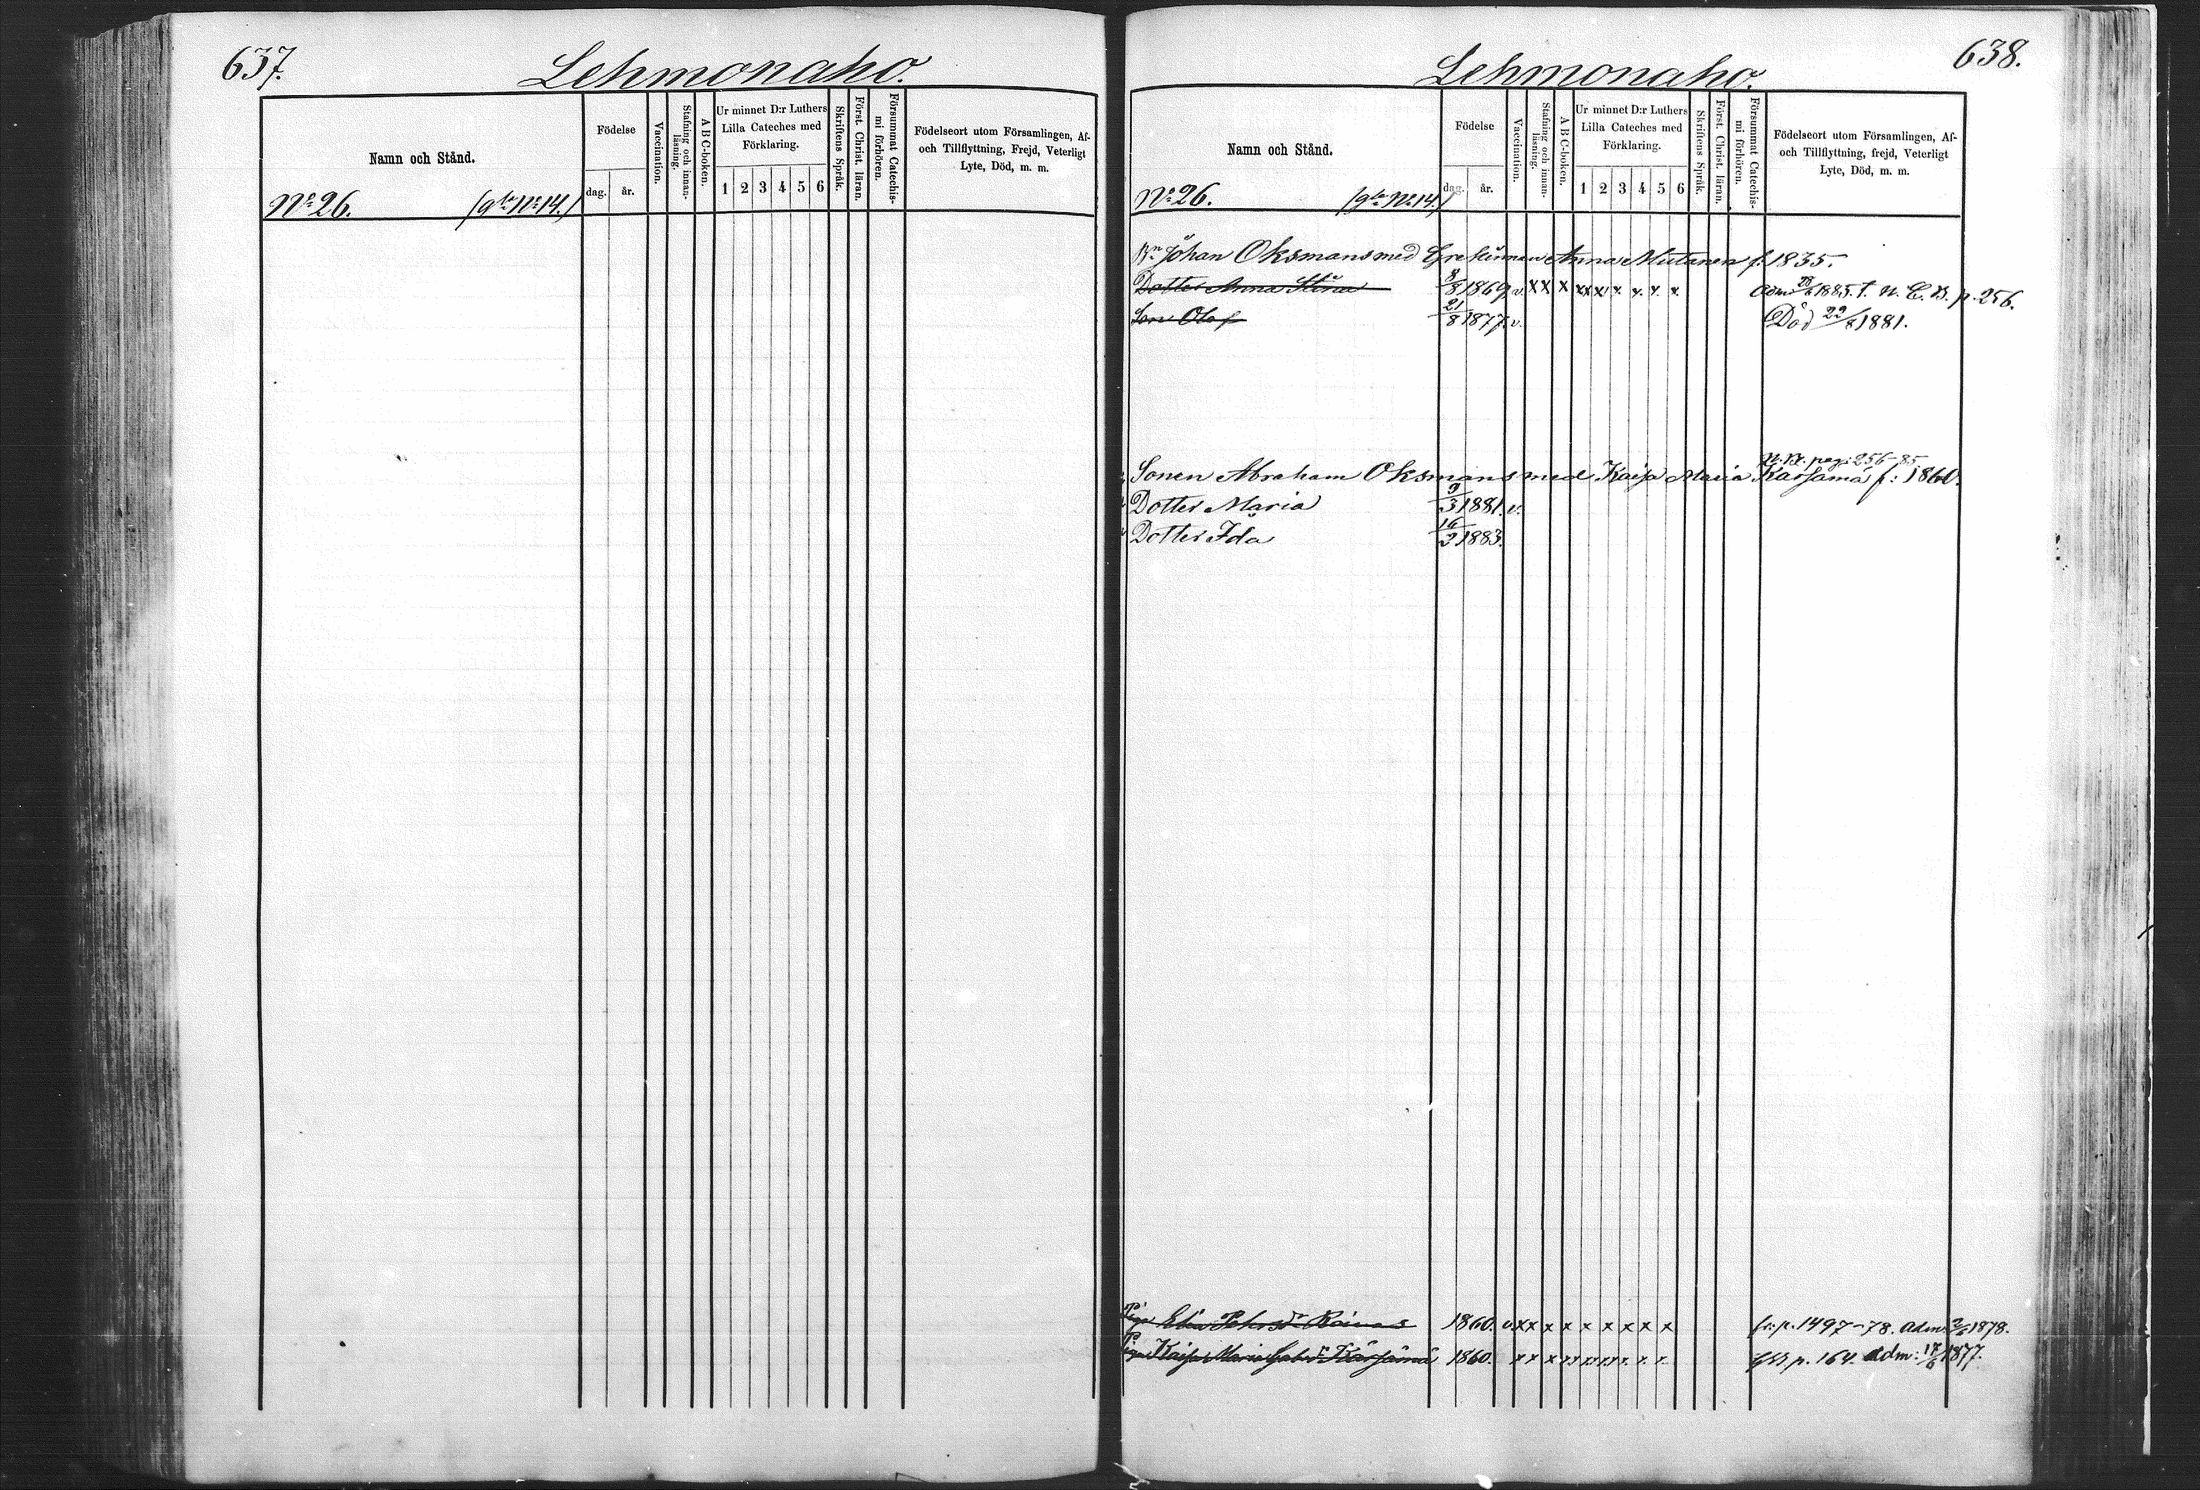 637.
Lehmonaho.
Namn och Stånd.
Födelse
dag. år.
Vaccination.
Stafning och innan-läsning.
A B C-boken.
Ur minnet D:r Luthers
Lilla Cateches med
Förklaring.
1 2 3 4 5 6
Skriftens Språk.
Först. Christ. läran.
Försummat Catechis-mi förhören.
Födelseort utom Församlingen, Af-
och Tillflyttning, Frejd, Veterligt
Lyte, Död, m. m.
No 26. (gla No 14.)
638.
Lehmonaho.
Namn och Stånd.
Födelse
dag. år.
Vaccination.
Stafning och innan-läsning.
A B C-boken.
Ur minnet D:r Luthers
Lilla Cateches med
Förklaring.
1 2 3 4 5 6
Skriftens Språk.
Först. Christ. läran.
Försummat Catechis-mi förhören.
Födelseort utom Församlingen, Af-
och Tillflyttning, frejd, Veterligt
Lyte, Död, m. m.
No 26. (gla No 14.)
Bn Johan Oksmans med Anna Miitanen f. 1835.
Dotter Anna Stina 8/8 1869 v. x x x x x x x x x x 1885. p. 256.
Son Olof 21/8 1877. v. Död 22/8 1881.
N.B. pag: 256-85
Sonen Abraham Oksmans med Kaisa Maria Kärsämä f: 1860.
Dotter Maria 9/3 1881. v.
Dotter Ida 16/2 1883.
Piga Elin Pehrsdr 1860. v. x x x x x x x x x fr. p. 1497-78. adm. 2/6 1878.
Piga Kaisa Maria Gabrdr Kärsämä 1860. x x x x x x x x x p. 164. adm: 17/6 1877.